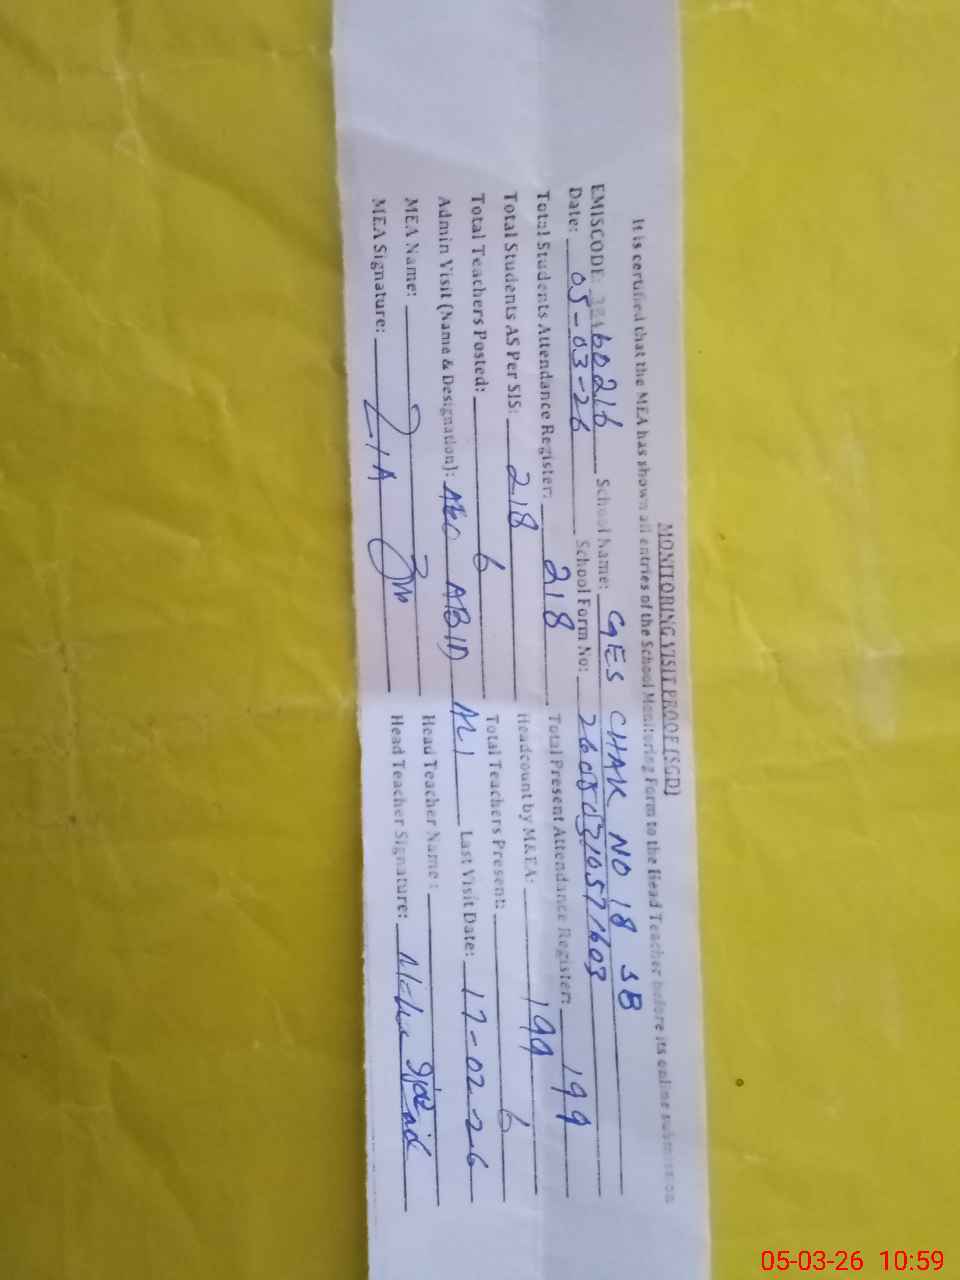 MONITORING VISIT PROOF [SGD]
It is certified that the MEA has shown all entries of the School Monitoring Form to the Head Teacher before its online submission
EMISCODE: 60216 School Name: GES CHAK NO 18 SB
Date: 05-03-26 School Form No:
Total Students Attendance Register: 218 Total Present Attendance Register: 199
Total Students AS Per SIS: 218 Headcount by M&EA: 199
Total Teachers Posted: 6 Total Teachers Present: 6
Admin Visit (Name & Designation): AEO ABID ALI Last Visit Date: 17-02-26
MEA Name: Head Teacher Name:
MEA Signature: ZIA Head Teacher Signature:
05-03-26 10:59